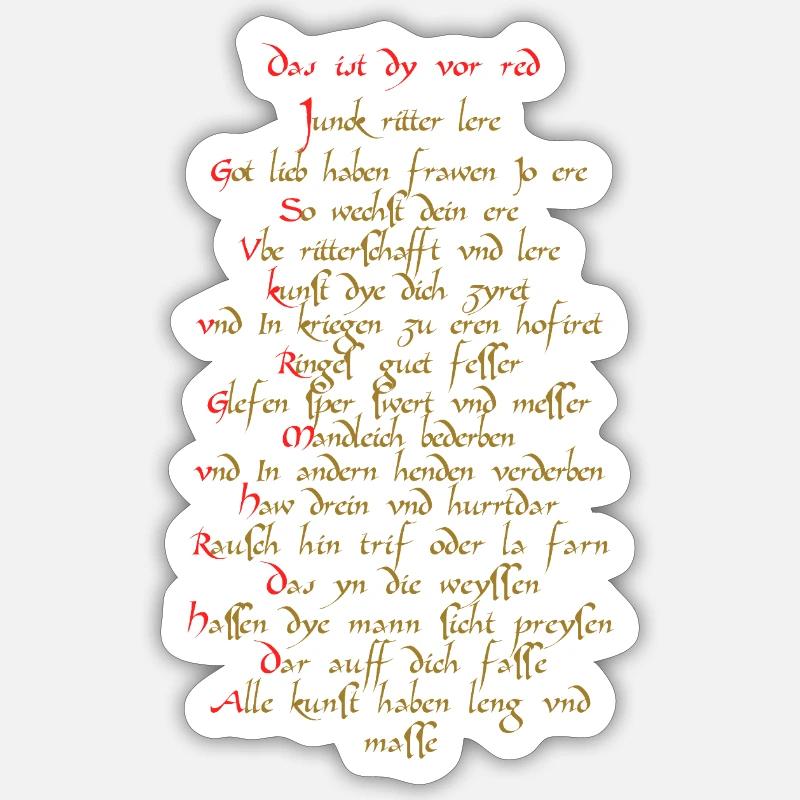 Das ist dy vor red
Junck ritter lere
Got lieb haben frawen Jo ere
So wechſt dein ere
Vbe ritterſchafft vnd lere
kunſt dye dich zyret
vnd In kriegen zu eren hofiret
Ringeſ guet feſſer
Glefen ſper ſwert vnd meſſer
Mandleich bederben
vnd In andern henden verderben
haw drein vnd hurrtdar
Rauſch hin trif oder la farn
Das yn die weyſſen
haſſen dye mann ſicht preyſen
Dar auff dich faſſe
Alle kunſt haben leng vnd
maſſe